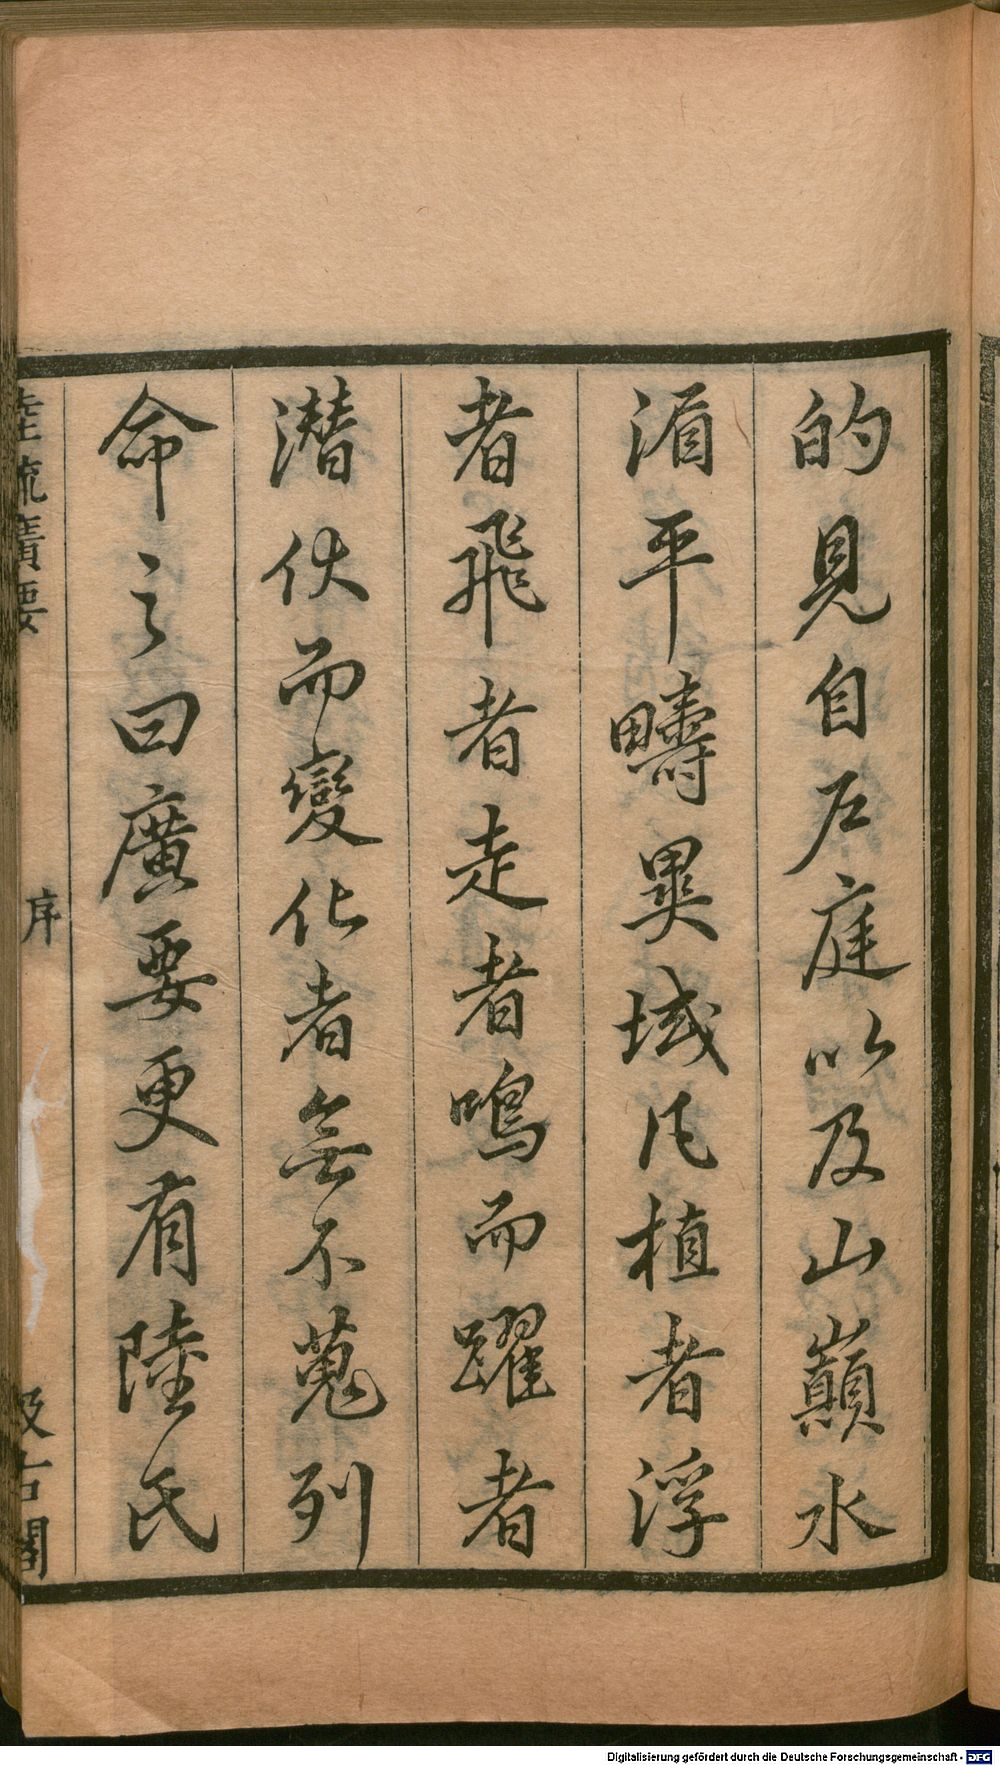 的見自戶庭以及山巔水
湄平疇異域凡植者浮
者飛者走者鳴而躍者
潛伏而變化者無不蒐列
命之曰廣要更有陸氏
陸疏廣要
序
汲古閣
Digitalisierung gefördert durch die Deutsche Forschungsgemeinschaft - DFG